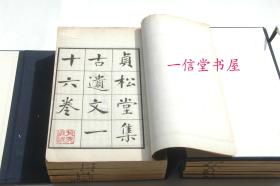 貞松堂集
古遺文一
十六卷
一信堂书屋